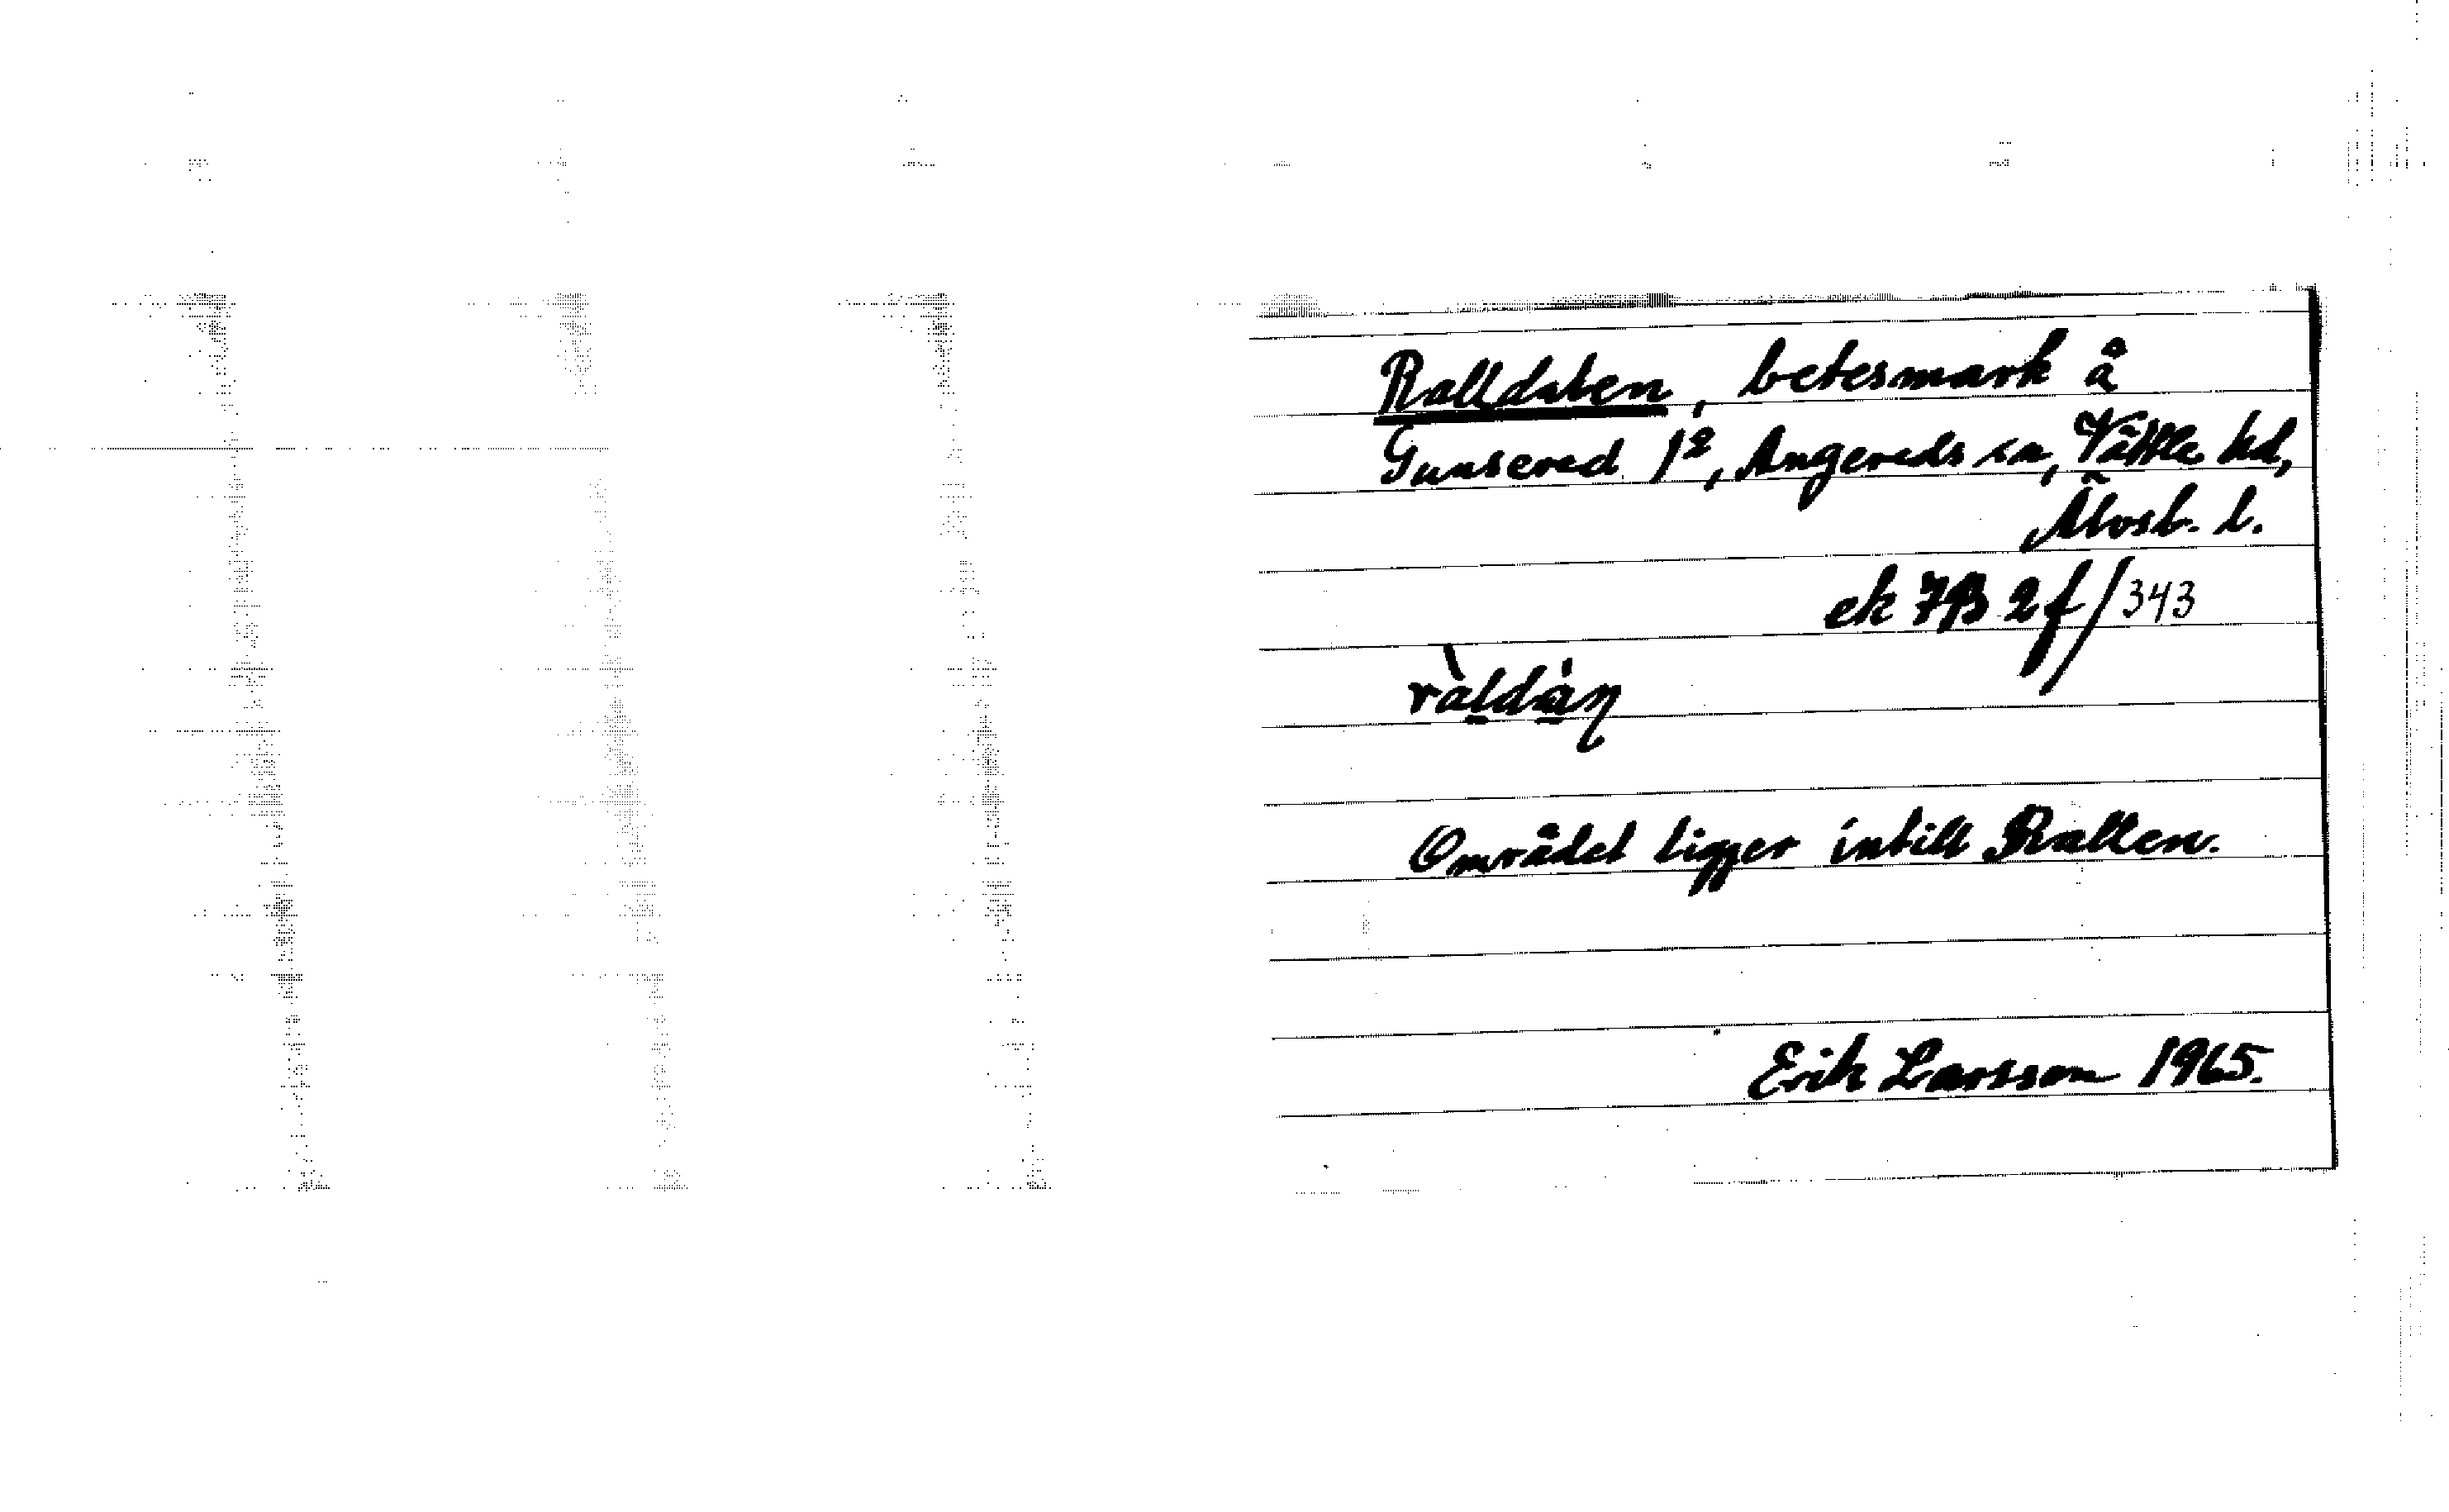 Ralldalen, betesmark å
Gunsered 1², Angereds sn, Vättle hd,
Älvsb. l.
ek 7B 2f/343
ràldàn
Området ligger intill Rallen.
Erik Larsson 1965.